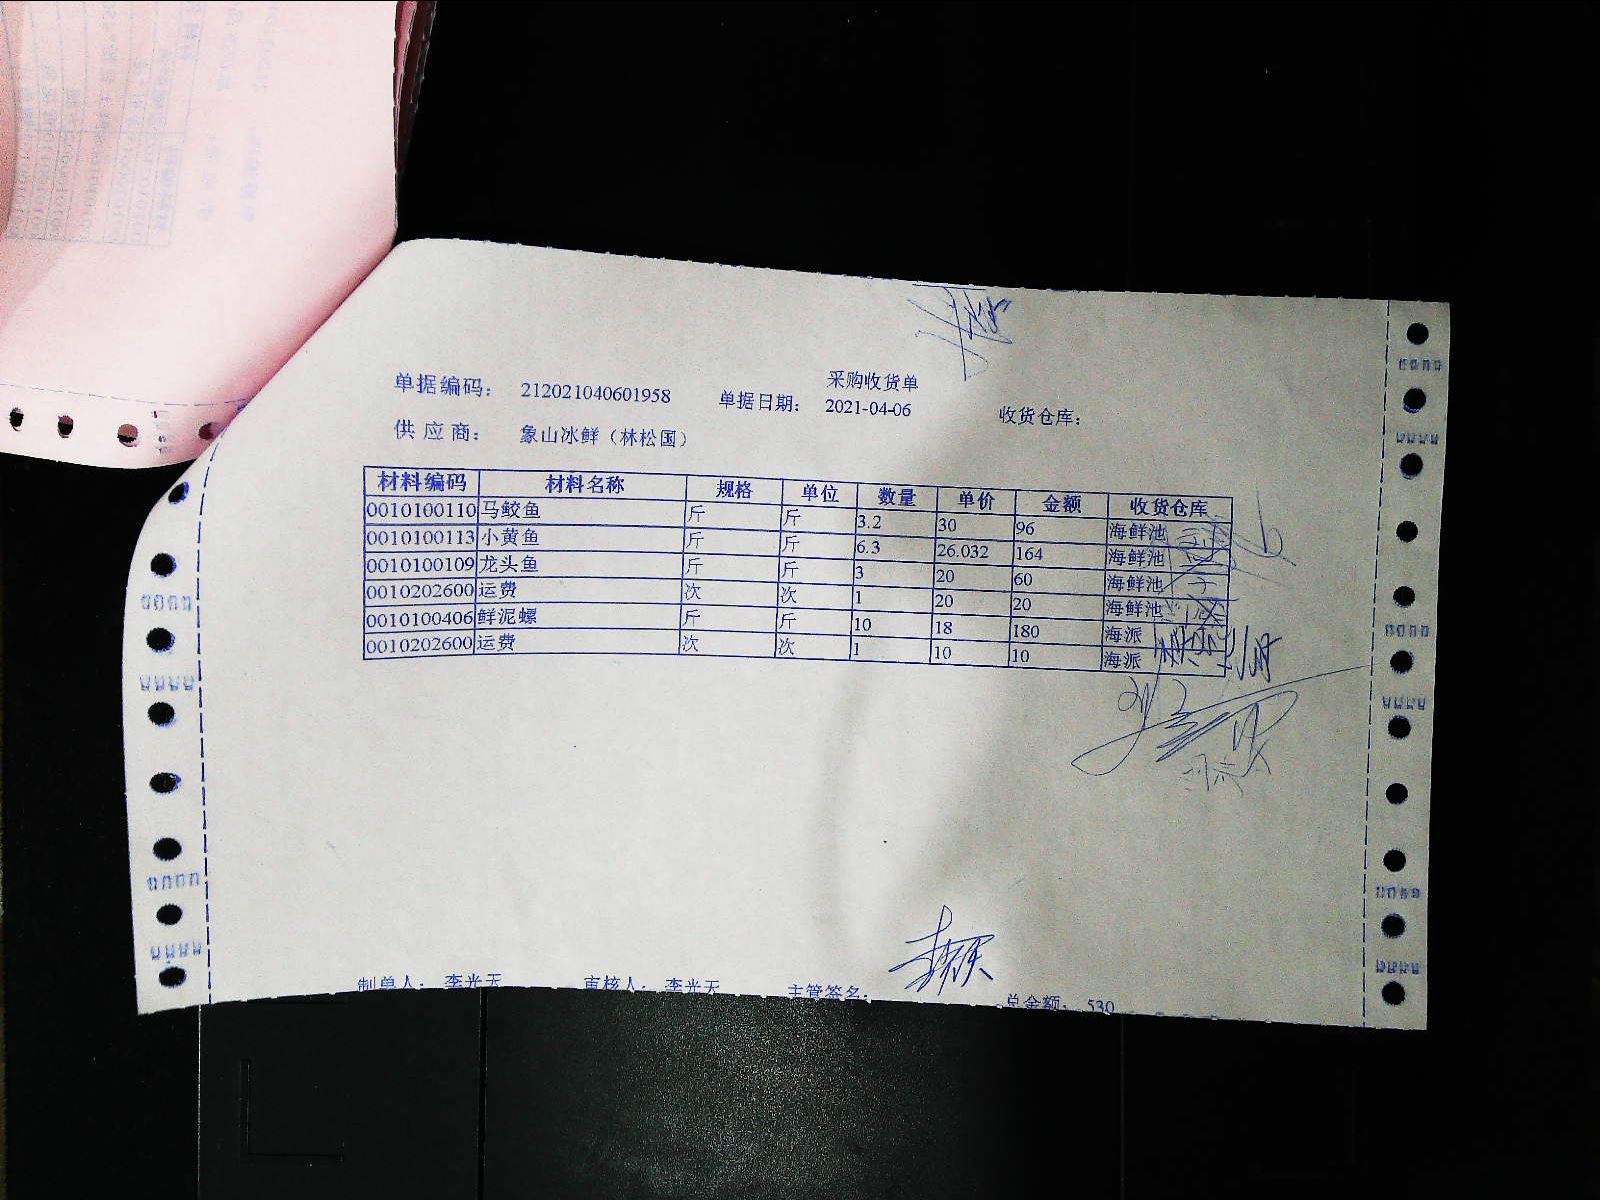 采购收货单
单据编码: 212021040601958 单据日期: 2021-04-06 收货仓库:
供应商: 象山冰鲜（林松国）
材料编码 材料名称 规格 单位 数量 单价 金额 收货仓库
0010100110 马鲛鱼 斤 斤 3.2 30 96 海鲜池
0010100113 小黄鱼 斤 斤 6.3 26.032 164 海鲜池
0010100109 龙头鱼 斤 斤 3 20 60 海鲜池
0010202600 运费 次 次 1 20 20 海鲜池
0010100406 鲜泥螺 斤 斤 10 18 180 海派
0010202600 运费 次 次 1 10 10 海派
制单人: 李光天 审核人: 李光天 主管签名: 总金额: 530